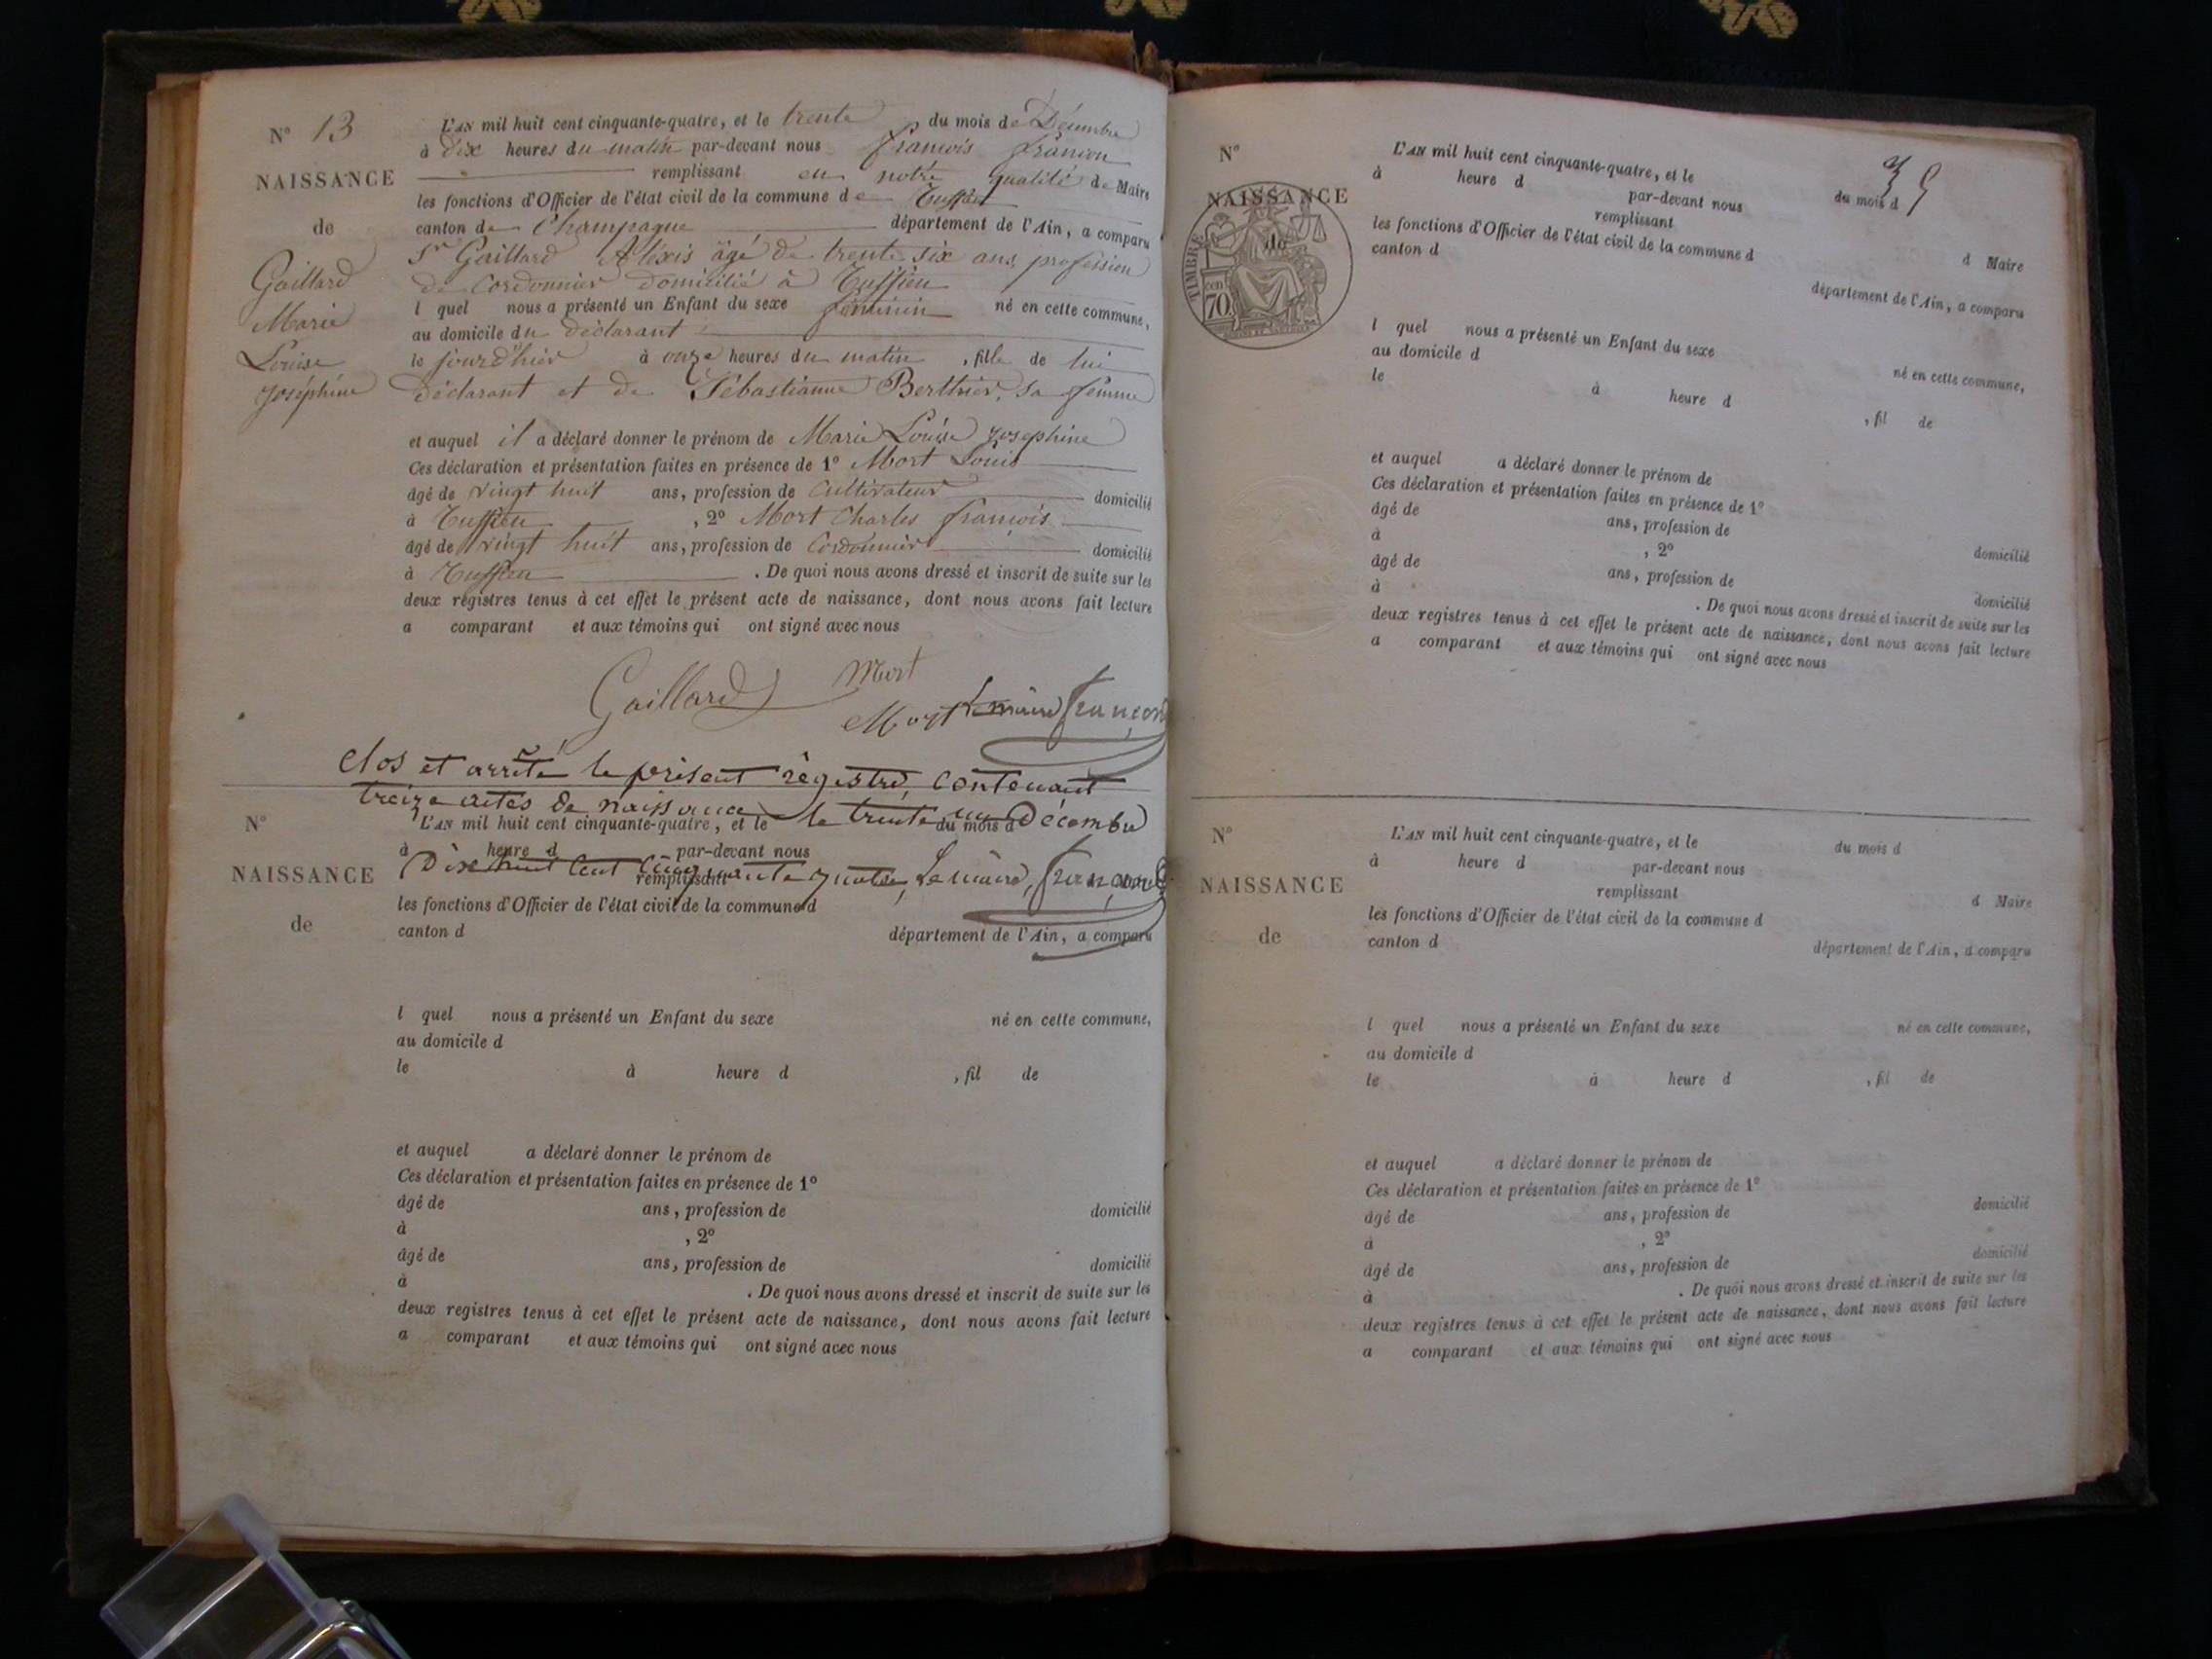 N° 13
NAISSANCE
de
Gaillard
Marie
Louise
Joséphine
L'AN mil huit cent cinquante-quatre, et le trente du mois de Décembre
à Dix heures du matin par-devant nous françois françon
remplissant en notre qualité de Maire
les fonctions d'Officier de l'état civil de la commune de Ruffieu
canton de Champagne département de l'Ain, a comparu
Sr Gaillard Aléxis âgé de trente six ans, profession
de Cordonnier domicilié à Ruffieu
l quel nous a présenté un Enfant du sexe féminin né en cette commune,
au domicile du déclarant
le jourd'hier à onze heures du matin, fille de lui
déclarant et de Sébastianne Berthier, sa femme
et auquel il a déclaré donner le prénom de Marie Louise Joséphine
Ces déclaration et présentation faites en présence de 1° Mort Louis
âgé de vingt huit ans, profession de Cultivateur domicilié
à Ruffieu, 2° Mort Charles françois
âgé de vingt huit ans, profession de Cordonnier domicilié
à Ruffieu. De quoi nous avons dressé et inscrit de suite sur les
deux registres tenus à cet effet le présent acte de naissance, dont nous avons fait lecture
a comparant et aux témoins qui ont signé avec nous
Gaillard Mort
Mort Le maire françon
Clos et arrêté le présent régistre, contenant
treize actes de naissance le trente un Décembre
Dix huit cent cinquante quatre, Le maire, françon
N°
NAISSANCE
de
L'AN mil huit cent cinquante-quatre, et le du mois d
à heure d par-devant nous
remplissant
les fonctions d'Officier de l'état civil de la commune d
canton d département de l'Ain, a comparu
l quel nous a présenté un Enfant du sexe né en cette commune,
au domicile d
le à heure d , fil de
et auquel a déclaré donner le prénom de
Ces déclaration et présentation faites en présence de 1°
âgé de ans, profession de domicilié
à , 2°
âgé de ans, profession de domicilié
à . De quoi nous avons dressé et inscrit de suite sur les
deux registres tenus à cet effet le présent acte de naissance, dont nous avons fait lecture
a comparant et aux témoins qui ont signé avec nous
N°
NAISSANCE
de
TIMBRE
70
L'AN mil huit cent cinquante-quatre, et le du mois d
à heure d par-devant nous
remplissant d Maire
les fonctions d'Officier de l'état civil de la commune d
canton d département de l'Ain, a comparu
l quel nous a présenté un Enfant du sexe né en cette commune,
au domicile d
le à heure d , fil de
et auquel a déclaré donner le prénom de
Ces déclaration et présentation faites en présence de 1°
âgé de ans, profession de domicilié
à , 2°
âgé de ans, profession de domicilié
à . De quoi nous avons dressé et inscrit de suite sur les
deux registres tenus à cet effet le présent acte de naissance, dont nous avons fait lecture
a comparant et aux témoins qui ont signé avec nous
N°
NAISSANCE
de
L'AN mil huit cent cinquante-quatre, et le du mois d
à heure d par-devant nous
remplissant d Maire
les fonctions d'Officier de l'état civil de la commune d
canton d département de l'Ain, a comparu
l quel nous a présenté un Enfant du sexe né en cette commune,
au domicile d
le à heure d , fil de
et auquel a déclaré donner le prénom de
Ces déclaration et présentation faites en présence de 1°
âgé de ans, profession de domicilié
à , 2°
âgé de ans, profession de domicilié
à . De quoi nous avons dressé et inscrit de suite sur les
deux registres tenus à cet effet le présent acte de naissance, dont nous avons fait lecture
a comparant et aux témoins qui ont signé avec nous